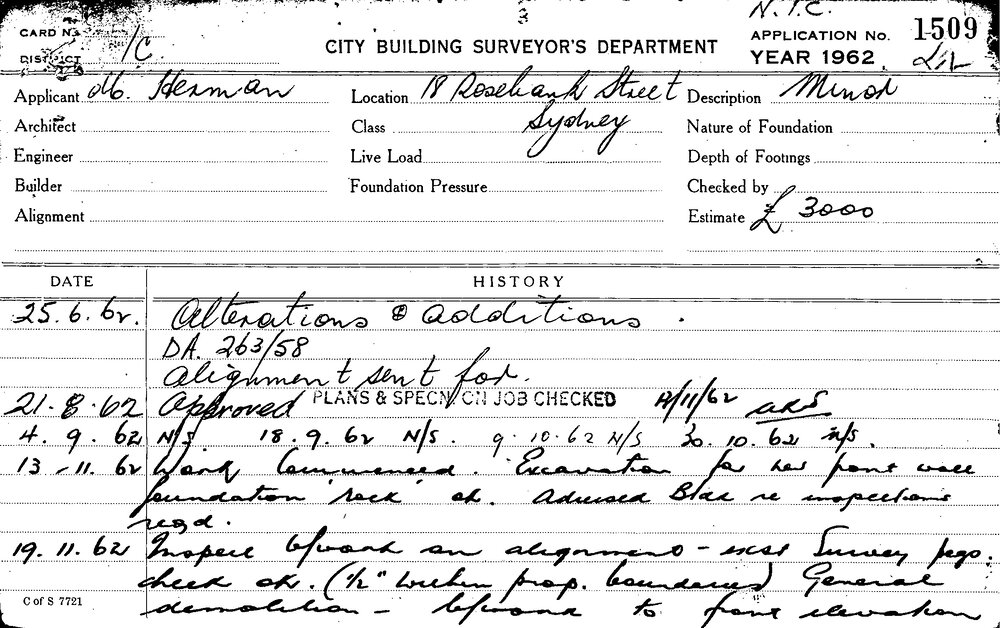 N.T.C.
CARD No. CITY BUILDING SURVEYOR'S DEPARTMENT APPLICATION No. 1509
DISTRICT 1C. YEAR 1962
Applicant M. Herman Location 18 Rosebank Street Description Minor
Architect Class Sydney Nature of Foundation
Engineer Live Load Depth of Footings
Builder Foundation Pressure Checked by
Alignment Estimate £ 3000
DATE HISTORY
25.6.62. Alterations & additions.
DA. 263/58
Alignment sent for.
21.8.62 Approved PLANS & SPECN ON JOB CHECKED 12/11/62
4.9.62 N/S 18.9.62 N/S. 9.10.62 N/S 30.10.62 N/S.
13-11.62 Work Commenced. Excavation for new front wall
foundation 'rock' ok. Advised Bldr re inspections
reqd.
19.11.62 Inspect b/work on alignment - exist Survey pegs.
check ok. (1/2" within prop. boundaries) General
demolition - b/work to front elevation
C of S 7721